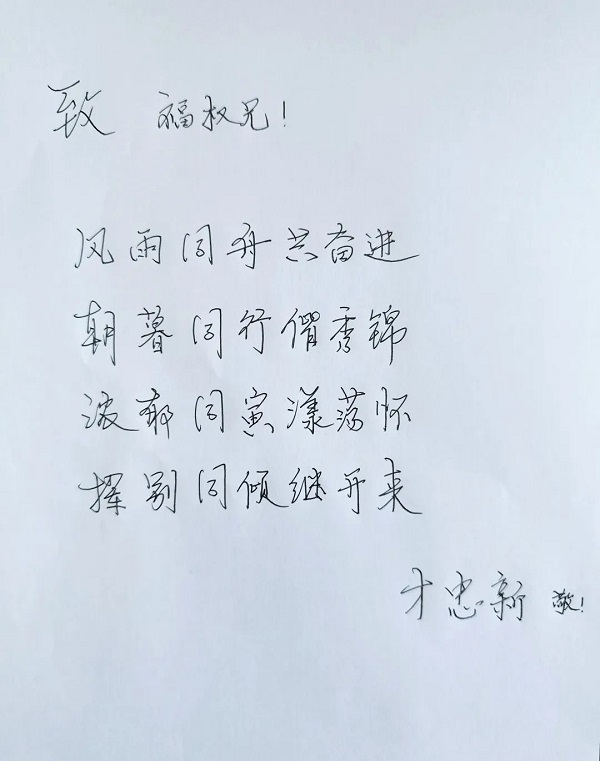 致 福权兄!
风雨同舟共奋进
朝暮同行儩秀锦
浓郁同寅漾荡怀
挥别同倾继开来
才忠新 敬!